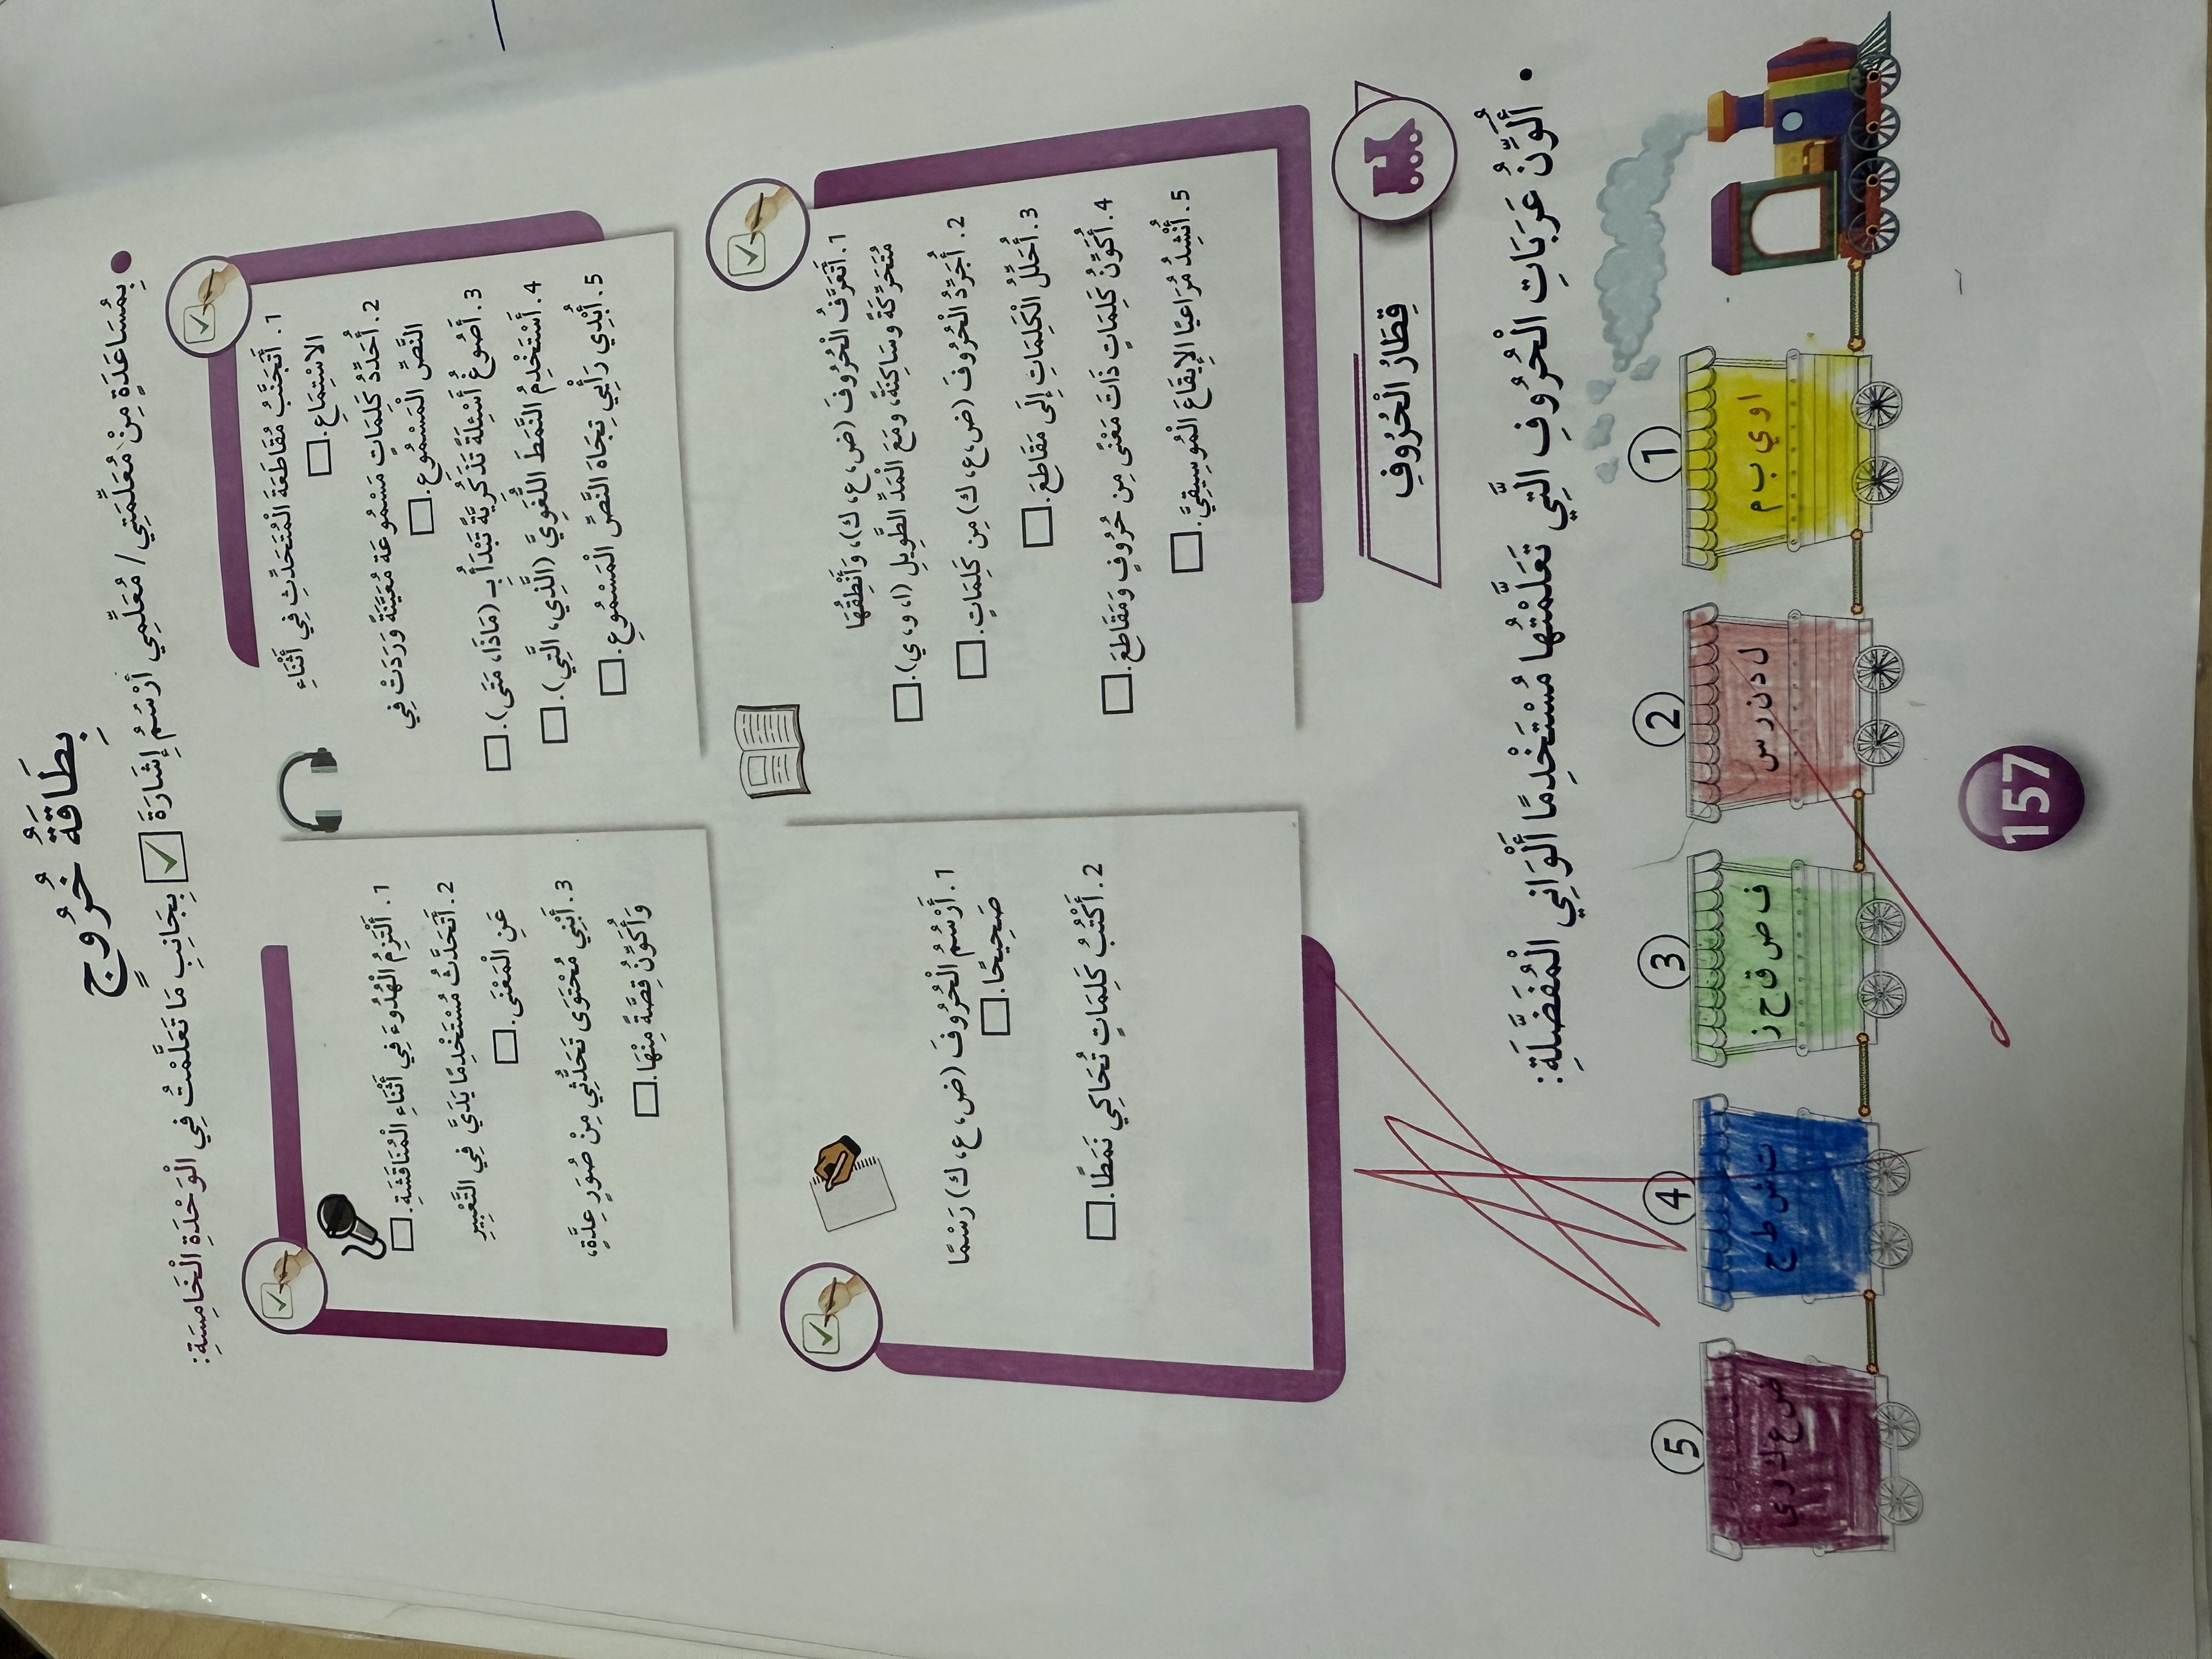 بِطَاقَةُ خُرُوجٍ
بِمُسَاعَدَةٍ مِنْ مُعَلِّمَتِي / مُعَلِّمِي أَرْسُمُ إِشَارَةَ ✓ بِجَانِبِ مَا تَعَلَّمْتُ فِي الْوَحْدَةِ الْخَامِسَةِ:
1. أَتَجَنَّبُ مُقَاطَعَةَ الْمُتَحَدِّثِ فِي أَثْنَاءِ
الِاسْتِمَاعِ.
2. أُحَدِّدُ كَلِمَاتٍ مَسْمُوعَة مُعَيَّنَةً وَرَدَتْ فِي
النَّصِّ الْمَسْمُوعِ.
3. أَصُوغُ أَسْئِلَةً تَذَكُّرِيَّةً تَبْدَأُ بِـ (مَاذَا، مَتَى).
4. أَسْتَخْدِمُ النَّمَطَ اللُّغَوِيَّ (الَّذِي، الَّتِي).
5. أُبْدِي رَأْيِي تجَاهَ النَّصِّ الْمَسْمُوعِ.
1. أَلْتَزِمُ الْهُدُوءَ فِي أَثْنَاءِ الْمُنَاقَشَةِ.
2. أَتَحَدَّثُ مُسْتَخْدِمًا يَدَيَّ فِي التَّعْبِيرِ
عَنِ الْمَعْنَى.
3. أَبْنِي مُحْتَوَى تَحَدُّثِي مِنْ صُوَرٍ عِدَّةٍ،
وَأُكَوِّنُ قِصَّةً مِنْهَا.
1. أَتَعَرَّفُ الْحُرُوفَ (ض، ع، ك)، وَأَنْطِقُهَا
مُتَحَرِّكَةً وَسَاكِنَةً، وَمَعَ الْمَدِّ الطَّوِيلِ (ا، و، ي).
2. أُجَرِّدُ الْحُرُوفَ (ض، ع، ك) مِن كَلِمَاتٍ.
3. أُحَلِّلُ الْكَلِمَاتِ إِلَى مَقَاطِعَ.
4. أُكَوِّنُ كَلِمَاتٍ ذَاتَ مَعْنًى مِن حُرُوفٍ وَمَقَاطِعَ.
5. أُنْشِدُ مُرَاعِيًا الْإِيقَاعَ الْمُوسِيقِيَّ.
1. أَرْسُمُ الْحُرُوفَ (ض، ع، ك) رَسْمًا
صَحِيحًا.
2. أَكْتُبُ كَلِمَاتٍ تُحَاكِي نَمَطًا.
قِطَارُ الْحُرُوفِ
• أُلَوِّنُ عَرَبَاتِ الْحُرُوفِ الَّتِي تَعَلَّمْتُهَا مُسْتَخْدِمًا أَلْوَانِي الْمُفَضَّلَةِ:
1
ا و ي ب م
2
ل د ن ر س
3
ف ص ق ح ز
4
ت ش ط ج
5
ض ع ك
157